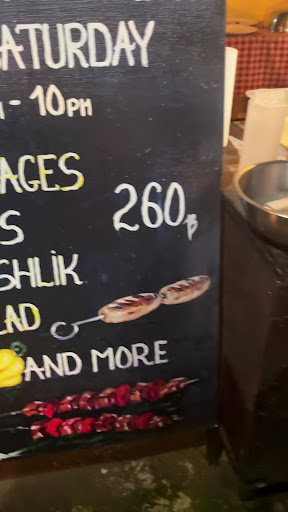 SATURDAY
- 10PM
AGES
S
260฿
SHLIK
LAD
AND MORE